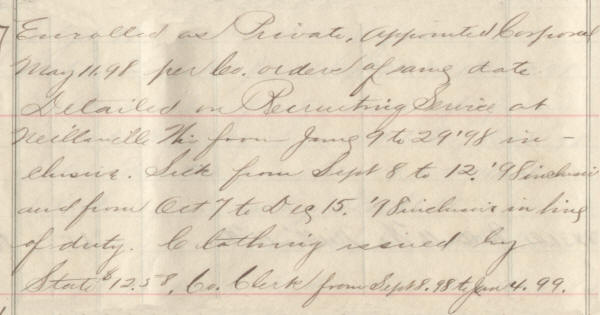 Enrolled as Private, Appointed Corporal
May 11.98 per Co. orders of same date
Detailed on Recruiting Service at
Neillsville Wis from June 9 to 29 '98 in-
clusive. Sick from Sept 8 to 12. '98 inclusive
and from Oct 7 to Dec 15. '98 inclusive in line
of duty. Clothing issued by
State $12.58, Co. Clerk from Sept 8.98 to Jan 4.99.